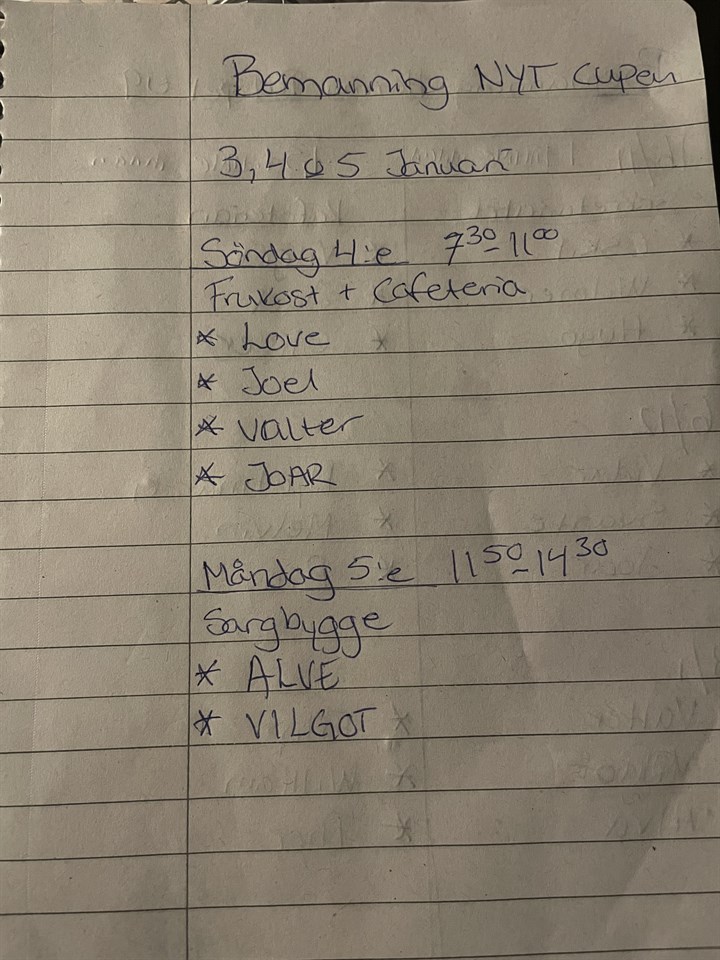 Bemanning NYT cupen
3, 4 & 5 Januari
Söndag 4:e 7³⁰-11⁰⁰
Frukost + Cafeteria
* Love
* Joel
* Valter
* JOAR
Måndag 5:e 11⁵⁰-14³⁰
Sargbygge
* ALVE
* VILGOT